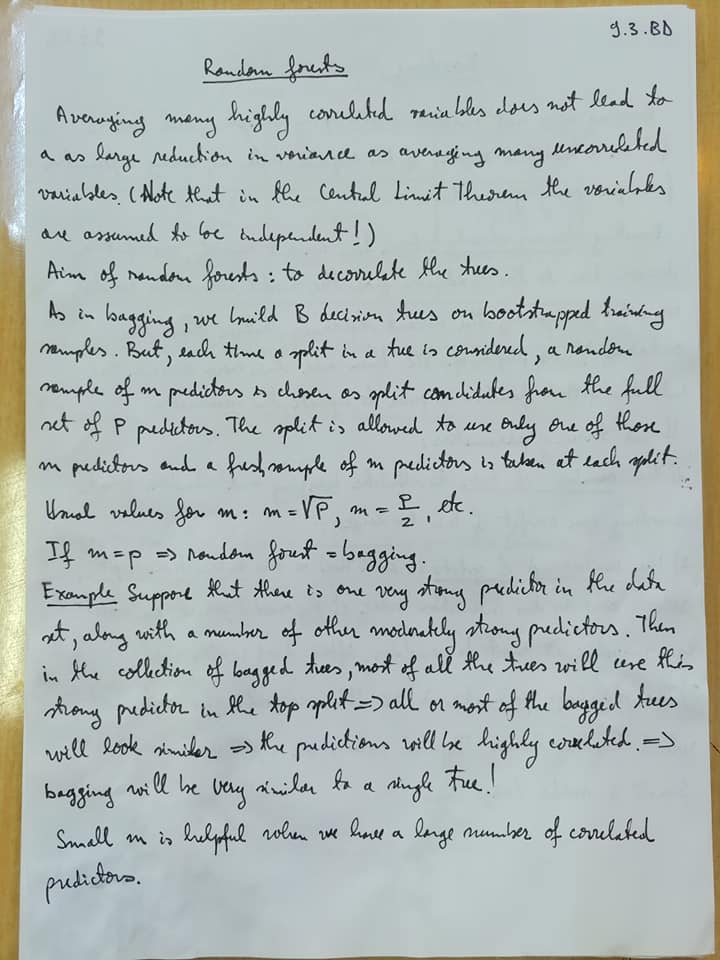 9.3.BD
Random forests
Averaging many highly correlated variables does not lead to
a as large reduction in variance as averaging many uncorrelated
variables. (Note that in the Central Limit Theorem the variables
are assumed to be independent!)
Aim of random forests: to decorrelate the trees.
As in bagging, we build B decision trees on bootstrapped training
samples. But, each time a split in a tree is considered, a random
sample of m predictors is chosen as split candidates from the full
set of P predictors. The split is allowed to use only one of those
m predictors and a fresh sample of m predictors is taken at each split.
Usual values for m: m = √P, m = P/2, etc.
If m = p => random forest = bagging.
Example Suppose that there is one very strong predictor in the data
set, along with a number of other moderately strong predictors. Then
in the collection of bagged trees, most of all the trees will use this
strong predictor in the top split => all or most of the bagged trees
will look similar => the predictions will be highly correlated. =>
bagging will be very similar to a single tree!
Small m is helpful when we have a large number of correlated
predictors.